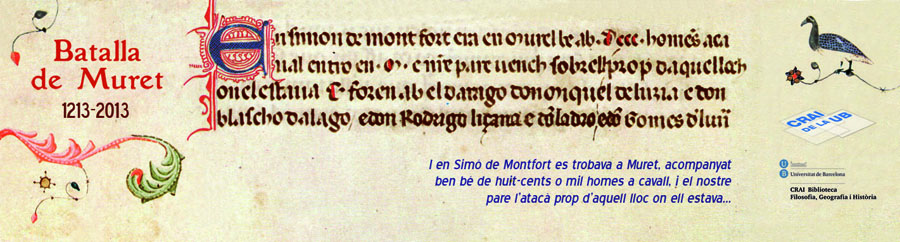 Batalla
de Muret
1213-2013
En simon de mont fort era en murel be ab. Dccc. homes a ca
ual entro en .M. e nr̄e pare vench sobrell prop daquell loch
on ell estaua E foren ab el darago don miquel de luzia e don
blascho dalago, e don Rodrigo liçana e
I en Simó de Montfort es trobava a Muret, acompanyat
ben bé de huit-cents o mil homes a cavall, i el nostre
pare l'atacà prop d'aquell lloc on ell estava...
CRAI
DE LA UB
Universitat de Barcelona
CRAI Biblioteca
Filosofia, Geografia i Història